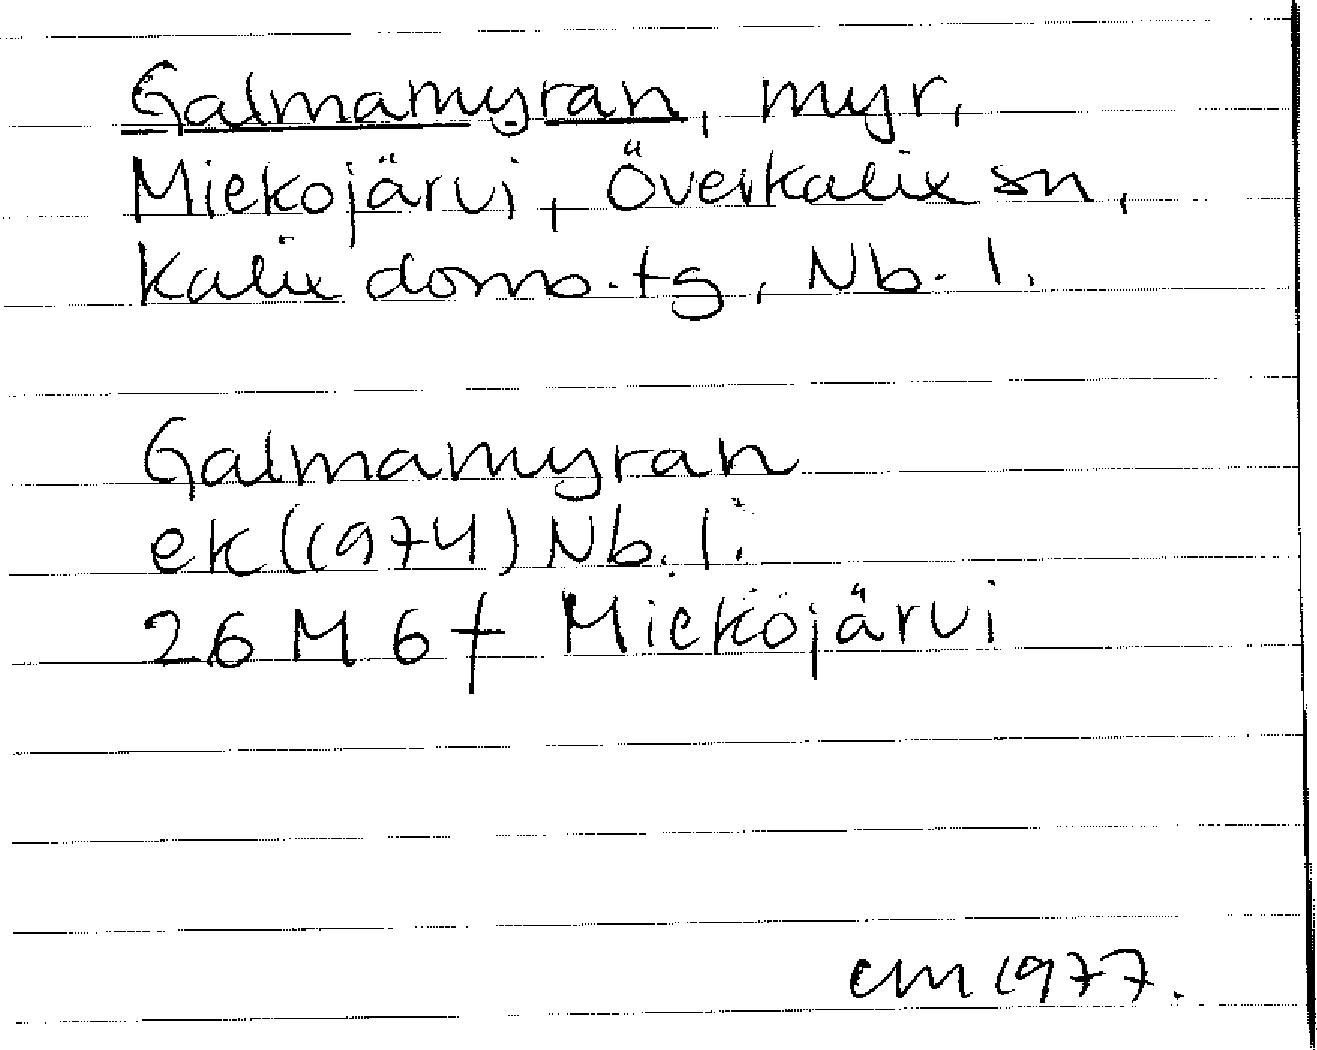 Galmamyran, myr,
Miekojärvi, Överkalix sn,
Kalix doms.tg, Nb. l.
Galmamyran
ek (1974) Nb. l.
26 M 6 f Miekojärvi
cm 1977.